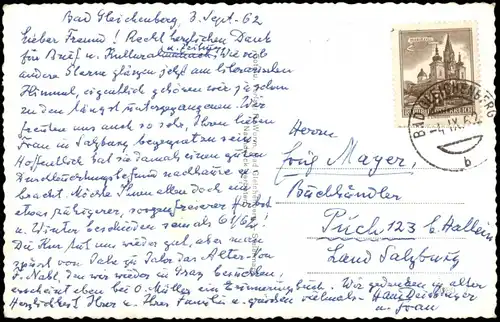 Bad Gleichenberg, 3. Sept. 62
Lieber Freund! Recht herzlichen Dank
für Brief u. Kultur Wie viel
andere Sterne glänzen jetzt am literarischen
Himmel, eigentlich gehören wir ja schon
zu den längst untergegangenen. Wir
freuten uns auch so sehr, Ihre lieben
Frau in Salzburg begegnet zu sein
Hoffentlich hat sie damals einen guten
nachhause
bracht. Möchte Ihnen allen doch ein
etwas ruhigerer, sorgenfreierer Herbst
u. Winter beschieden sein als 61/62!
Die Kur hat uns wieder gut, aber man
spürt von Jahr zu Jahr das Alter. Von
F. Nabl, den wir wieder in Graz besuchten,
erscheint eben bei O. Müller ein Erinnerungsbuch. Wir gedenken in alter
Herzlichkeit Ihrer u. Ihrer Familie u. grüssen vielmals
u. Frau
Herrn
Mayer,
Buchhändler
Puch 123 b. Hallein
Land Salzburg
BAD GLEICHENBERG
-4.IX.62
b